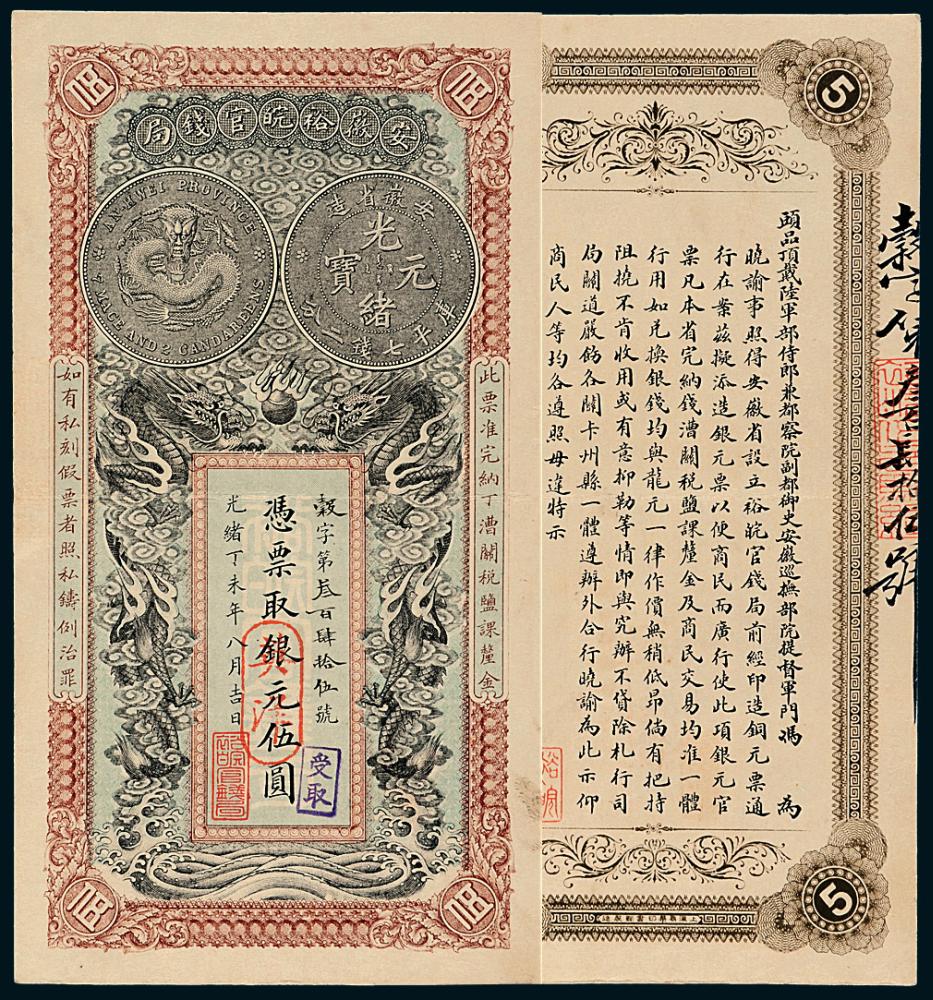 安徽裕皖官錢局
ANHWEI PROVINCE
7 MACE AND 2 CANDAREENS
安徽省造
光緒元寶
庫平七錢二分
此票准完納丁漕關稅鹽課釐金
穀字第叁百肆拾伍號
憑票取銀元伍圓
光緒丁未年八月吉日
受取
如有私刻假票者照私鑄例治罪
5
5
頭品頂戴陸軍部侍郎兼都察院副都御史安徽巡撫部院提督軍門馮 為
曉諭事照得安徽省設立裕皖官錢局前經印造銅元票通
行在案茲擬添造銀元票以便商民而廣行使此項銀元官
票凡本省完納錢漕關稅鹽課釐金及商民交易均准一體
行用如兌換銀錢均與龍元一律作價無稍低昂倘有把持
阻撓不肯收用或有意抑勒等情即與究辦不貸除札行司
局關道嚴飭各關卡州縣一體遵辦外合行曉諭為此示仰
商民人等均各遵照毋違特示